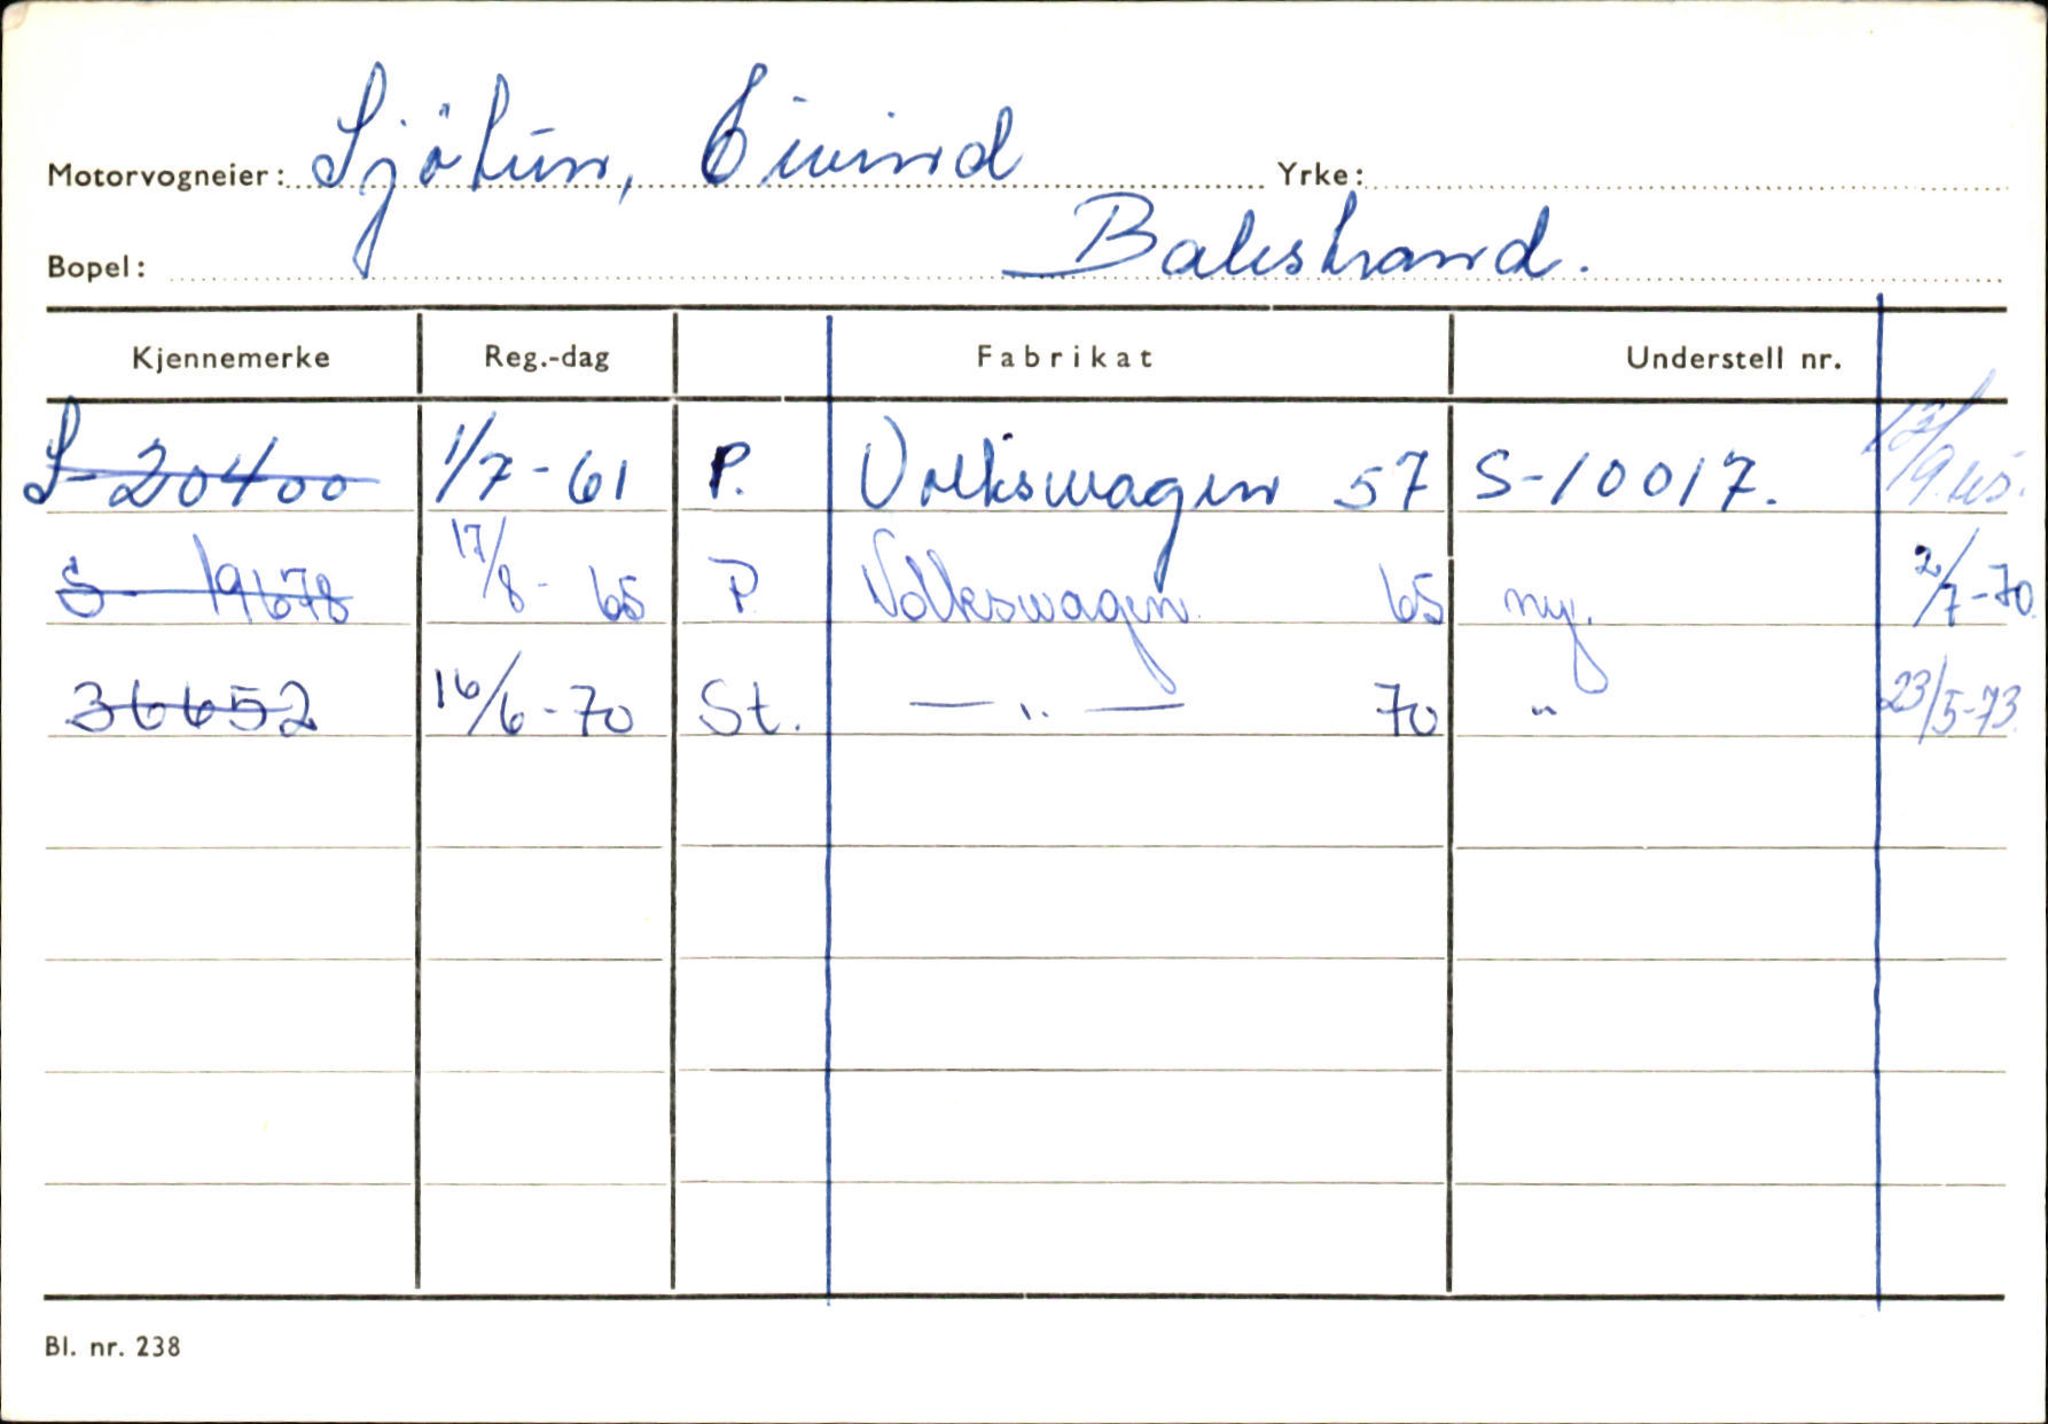 Motorvogneier: Sjötun, Eivind Yrke:
Bopel: Balestrand.
Kjennemerke Reg.-dag Fabrikat Understell nr.
S-20400 1/7-61 P. Volkswagen 57 S-10017. 13/9.65.
S-19678 17/8-65 P. Volkswagen 65 ny. 2/7-70.
36652 16/6-70 St. —"— 70 " 23/5-73.
Bl. nr. 238